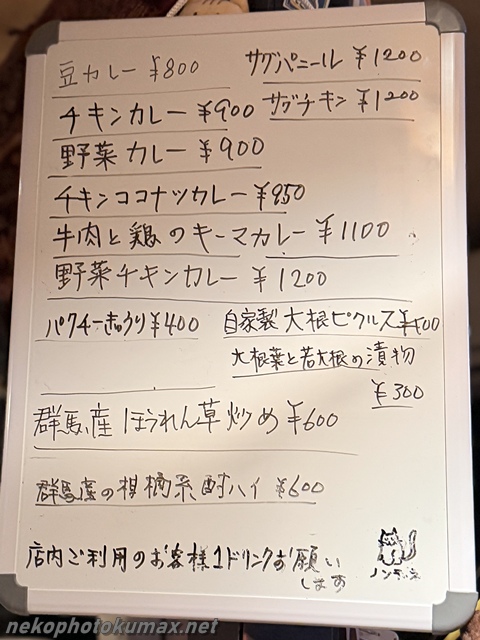 豆カレー ¥800
サグパニール ¥1200
チキンカレー ¥900
サグチキン ¥1200
野菜カレー ¥900
チキンココナツカレー ¥950
牛肉と鶏のキーマカレー ¥1100
野菜チキンカレー ¥1200
パクチーきゅうり ¥400
自家製大根ピクルス ¥400
大根葉と若大根の漬物
¥300
群馬産ほうれん草炒め ¥600
群馬産の柑橘系酎ハイ ¥600
店内ご利用のお客様1ドリンクお願い
します
nekophotokumax.net